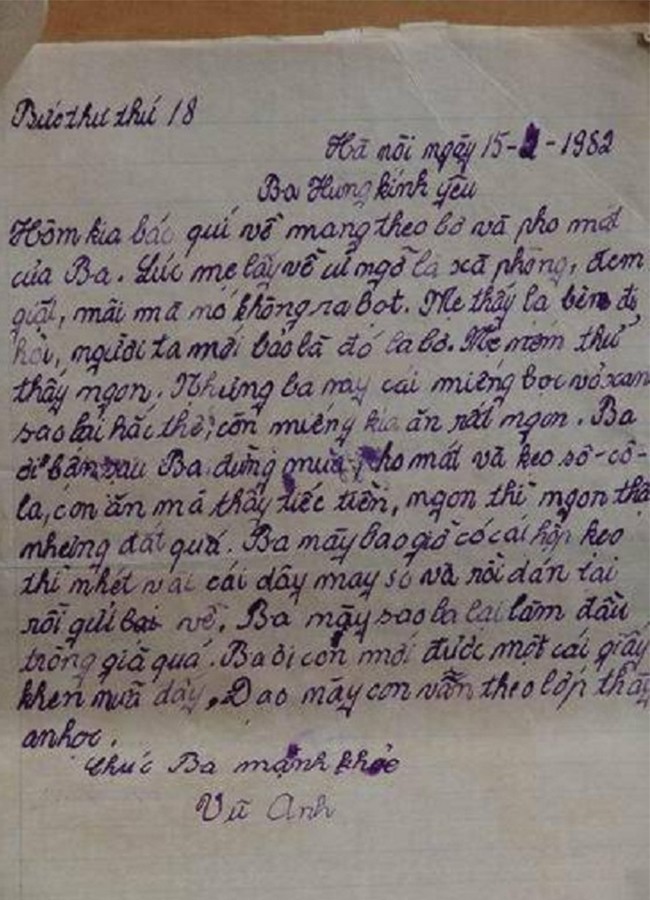 Bức thư thứ 18
Hà nội ngày 15-2-1982
Ba Hưng kính yêu
Hôm kia bác quí về mang theo bơ và pho mát
của Ba. Lúc mẹ lấy về cứ ngỡ là xà phòng, đem
giặt, mãi mà nó không ra bọt. Mẹ thấy lạ bèn đi
hỏi, người ta mới bảo là đó là bơ. Mẹ nếm thử
thấy ngon. Nhưng ba này cái miếng bọc vỏ xanh
sao lại hắc thế, còn miếng kia ăn rất ngon. Ba
ơi bận sau Ba đừng mua pho mát và kẹo sô-cô-
la, con ăn mà thấy tiếc tiền, ngon thì ngon thật
nhưng đắt quá. Ba mày bao giờ có cái hộp kẹo
thì nhét vài cái dây may so và rồi dán lại
rồi gửi về. Ba mày sao ba lại làm đầu
trông già quá. Ba ơi con mới được một cái giấy
khen nữa đấy. Dạo mày con vẫn theo lớp thầy
an học.
Chúc Ba mạnh khỏe
Vũ Anh